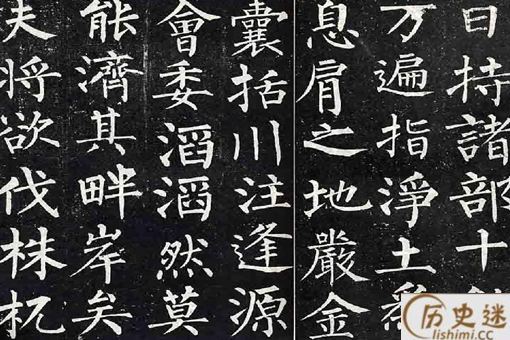 日持諸部十
万遍指淨土
息肩之地嚴金
囊括川注逢源
會委滔滔然莫
能濟其畔岸矣
夫將欲伐株杌
历史迷
lishimi.cc